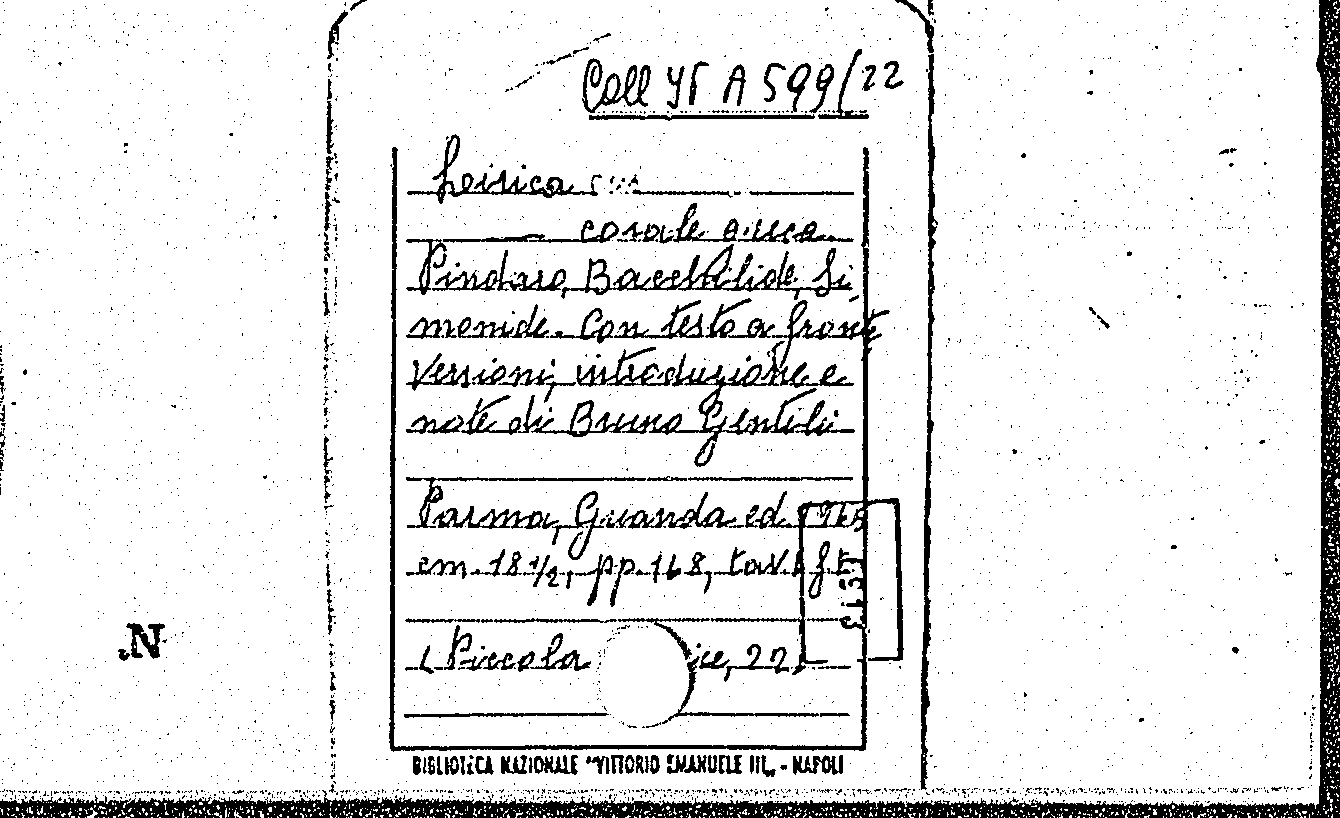 Coll 45 A 599/22
Leirica
corale greca.
Pindaro, Bacchilide, Si
monide. Con testo a fronte
Versioni, introduzione e
note di Bruno Gentili
Parma, Guanda ed. 1965
cm. 18 1/2, pp. 168, tav. f.t.
(Piccola ice, 22)
BIBLIOTECA NAZIONALE "VITTORIO EMANUELE III„ - NAPOLI
.N